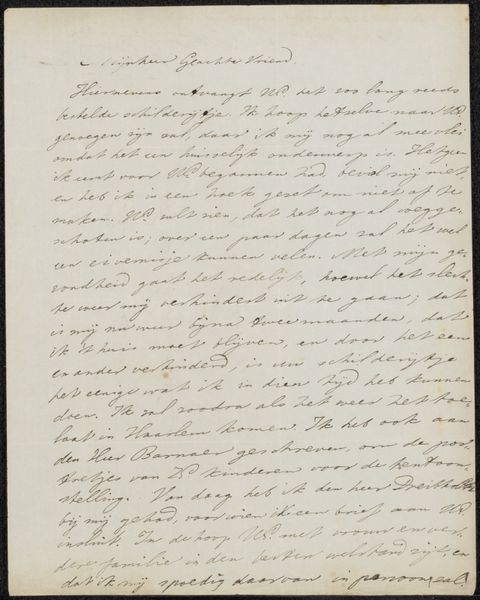 Mijnheer Geachte Vriend.
Hiernevens ontvangt UE. het zoo lang reeds
bestelde schilderijtje. Ik hoop hetzelve naar UE
genoegen zijn zal, daar ik mij nog al mee vlei
omdat het een huisselijk onderwerp is. Hetgeen
ik eerst voor UE begonnen had, beviel mij niet
en heb ik in een hoek gezet om niet af te
maken. UE. zult zien, dat het nog al wegge-
schoten is; over een paar dagen zal het wel
een eivernisje kunnen velen. Met mijn ge-
zondheid gaat het redelijk, hoewel het slech-
te weer mij verhindert uit te gaan; dat
is mij nu weer bijna twee maanden, dat
ik t'huis moet blijven, en door het een
en ander verhinderd, is uw schilderijtje
het eenige wat ik in dien tijd heb kunnen
doen. Ik zal zoodra als het weer het toe-
laat in Haarlem komen. Ik heb ook aan
den Heer Barnaer geschreven, om de por-
tretjes van Z kinderen voor de tentoon-
stelling. Van daag heb ik den heer
bij mij gehad, voor wien ik een brief aan UE.
insluit. In de hoop UE met vrouw en ver-
dere familie in den besten welstand zijt, en
dat ik mij spoedig daarvan in persoon zal